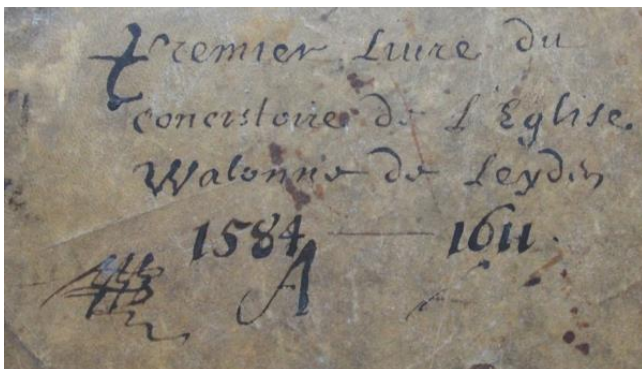 premier Livre du
concistoire de L'Eglise.
Walonne de Leyden
1584 — 1611.
A